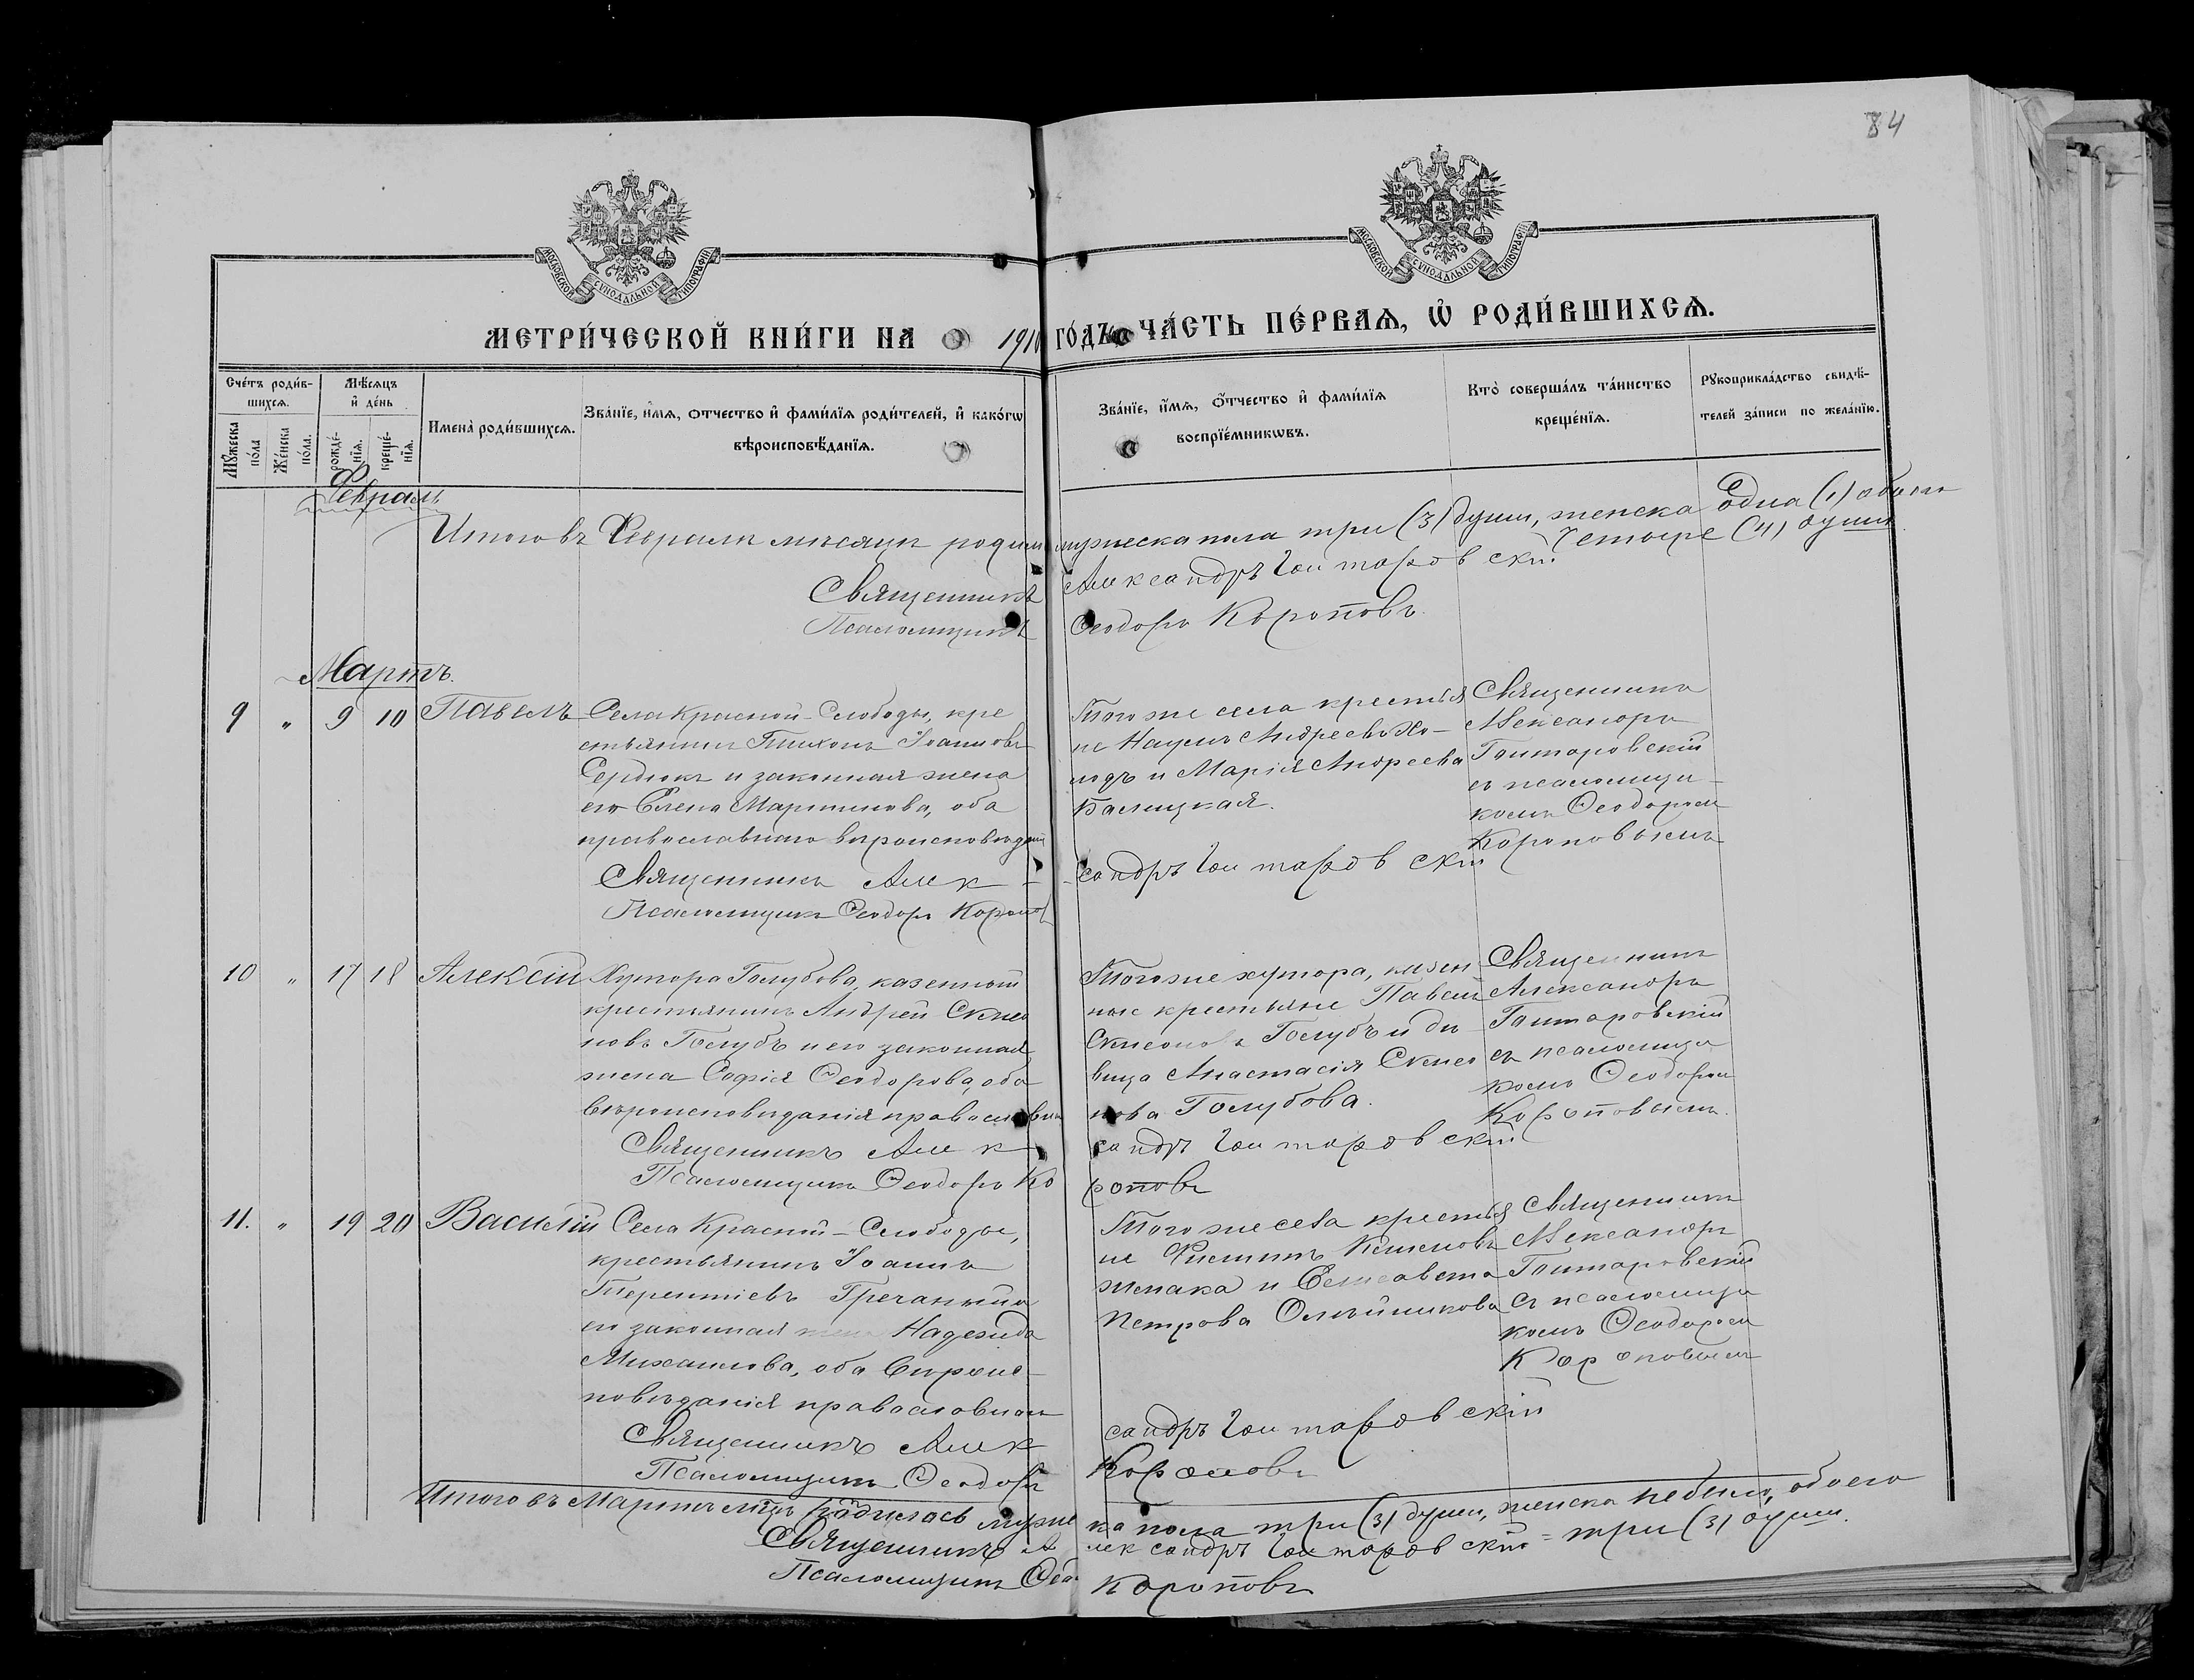 84
МОСКОВСКОЙ СѴНОДАЛЬНОЙ ТИПОГРАФІИ
МОСКОВСКОЙ СѴНОДАЛЬНОЙ ТИПОГРАФІИ
МЕТРИ́ЧЕСКОЙ КНИ́ГИ НА 1910 ГО́ДЪ ЧА́СТЬ ПЕ́РВАѦ, Ѡ҆ РОДИ́ВШИХСѦ.
Сче́тъ роди́в-
шихсѧ.
Мꙋ́жеска по́ла
Же́нска по́ла.
Мѣ́сѧцъ
и҆ де́нь
рожде́-
нїѧ.
креще́-
нїѧ.
Имена̀ роди́вшихсѧ.
Зва́нїе, и҆́мѧ, ѻ҆́тчество и҆ фами́лїѧ роди́телей, и҆ како́гѡ
вѣроисповѣ́данїѧ.
Зва́нїе, и҆́мѧ, ѻ҆́тчество и҆ фами́лїѧ
воспрїе́мникѡвъ.
Кто̀ соверша́лъ та́инство
креще́нїѧ.
Рꙋкоприкла́дство свидѣ́-
телей за́писи по жела́нїю.
Февраль
Итого въ Февралѣ мѣсяцѣ родил мужеска пола три (3) души, женска одна (1) обоего
четыре (4) души.
Священникъ Александръ Гаитаровскій
Псаломщикъ Ѳеодоръ Короповъ
Мартъ.
9 " 9 10 Павелъ
Села Красной-Слободы, кре
стьянинъ Тихонъ Іоанновъ
Сердюкъ и законная жена
его Елена Мартинова, оба
православнаго вѣроисповѣданія
Того же села крестья
не Наумъ Андреевъ Хо-
лодъ и Марія Андреева
Балицкая.
Священникъ
Александръ
Гаитаровскій
съ псаломщи-
комъ Ѳеодоромъ
Короповымъ
Священникъ Алек-сандръ Гаитаровскій
Псаломщикъ Ѳеодоръ Коропов
10 " 17 18 Алексій
Хутора Голубова, казенный
крестьянинъ Андрей Симео
новъ Голубъ и его законная
жена Софія Ѳеодорова, оба
вѣроисповѣданія православна
Того же хутора, казен
ные крестьяне Павелъ
Симеоновъ Голубъ и дѣ
вица Анастасія Симео
нова Голубова.
Священникъ
Александръ
Гаитаровскій
съ псаломщи
комъ Ѳеодоромъ
Короповымъ.
Священникъ Алек-сандръ Гаитаровскій
Псаломщикъ Ѳеодоръ Короповъ
11. " 19 20 Василій
Села Красной-Слободы,
крестьянинъ Іоаннъ
Терентіевъ Гречаный и
его законная жена Надежда
Михаилова, оба вѣроис-
повѣданія православнаго
Того же села крестья
не
и Елисавета
Петрова Олейникова
Священникъ
Александръ
Гаитаровскій
съ псаломщи
комъ Ѳеодоромъ
Короповымъ
Священникъ Александръ Гаитаровскій
Псаломщикъ Ѳеодоръ Короповъ
Итого въ Мартѣ мѣсц родилось мужеска пола три (3) души, женска не было, обоего
три (3) души.
Священникъ Александръ Гаитаровскій
Псаломщикъ Ѳео Короповъ